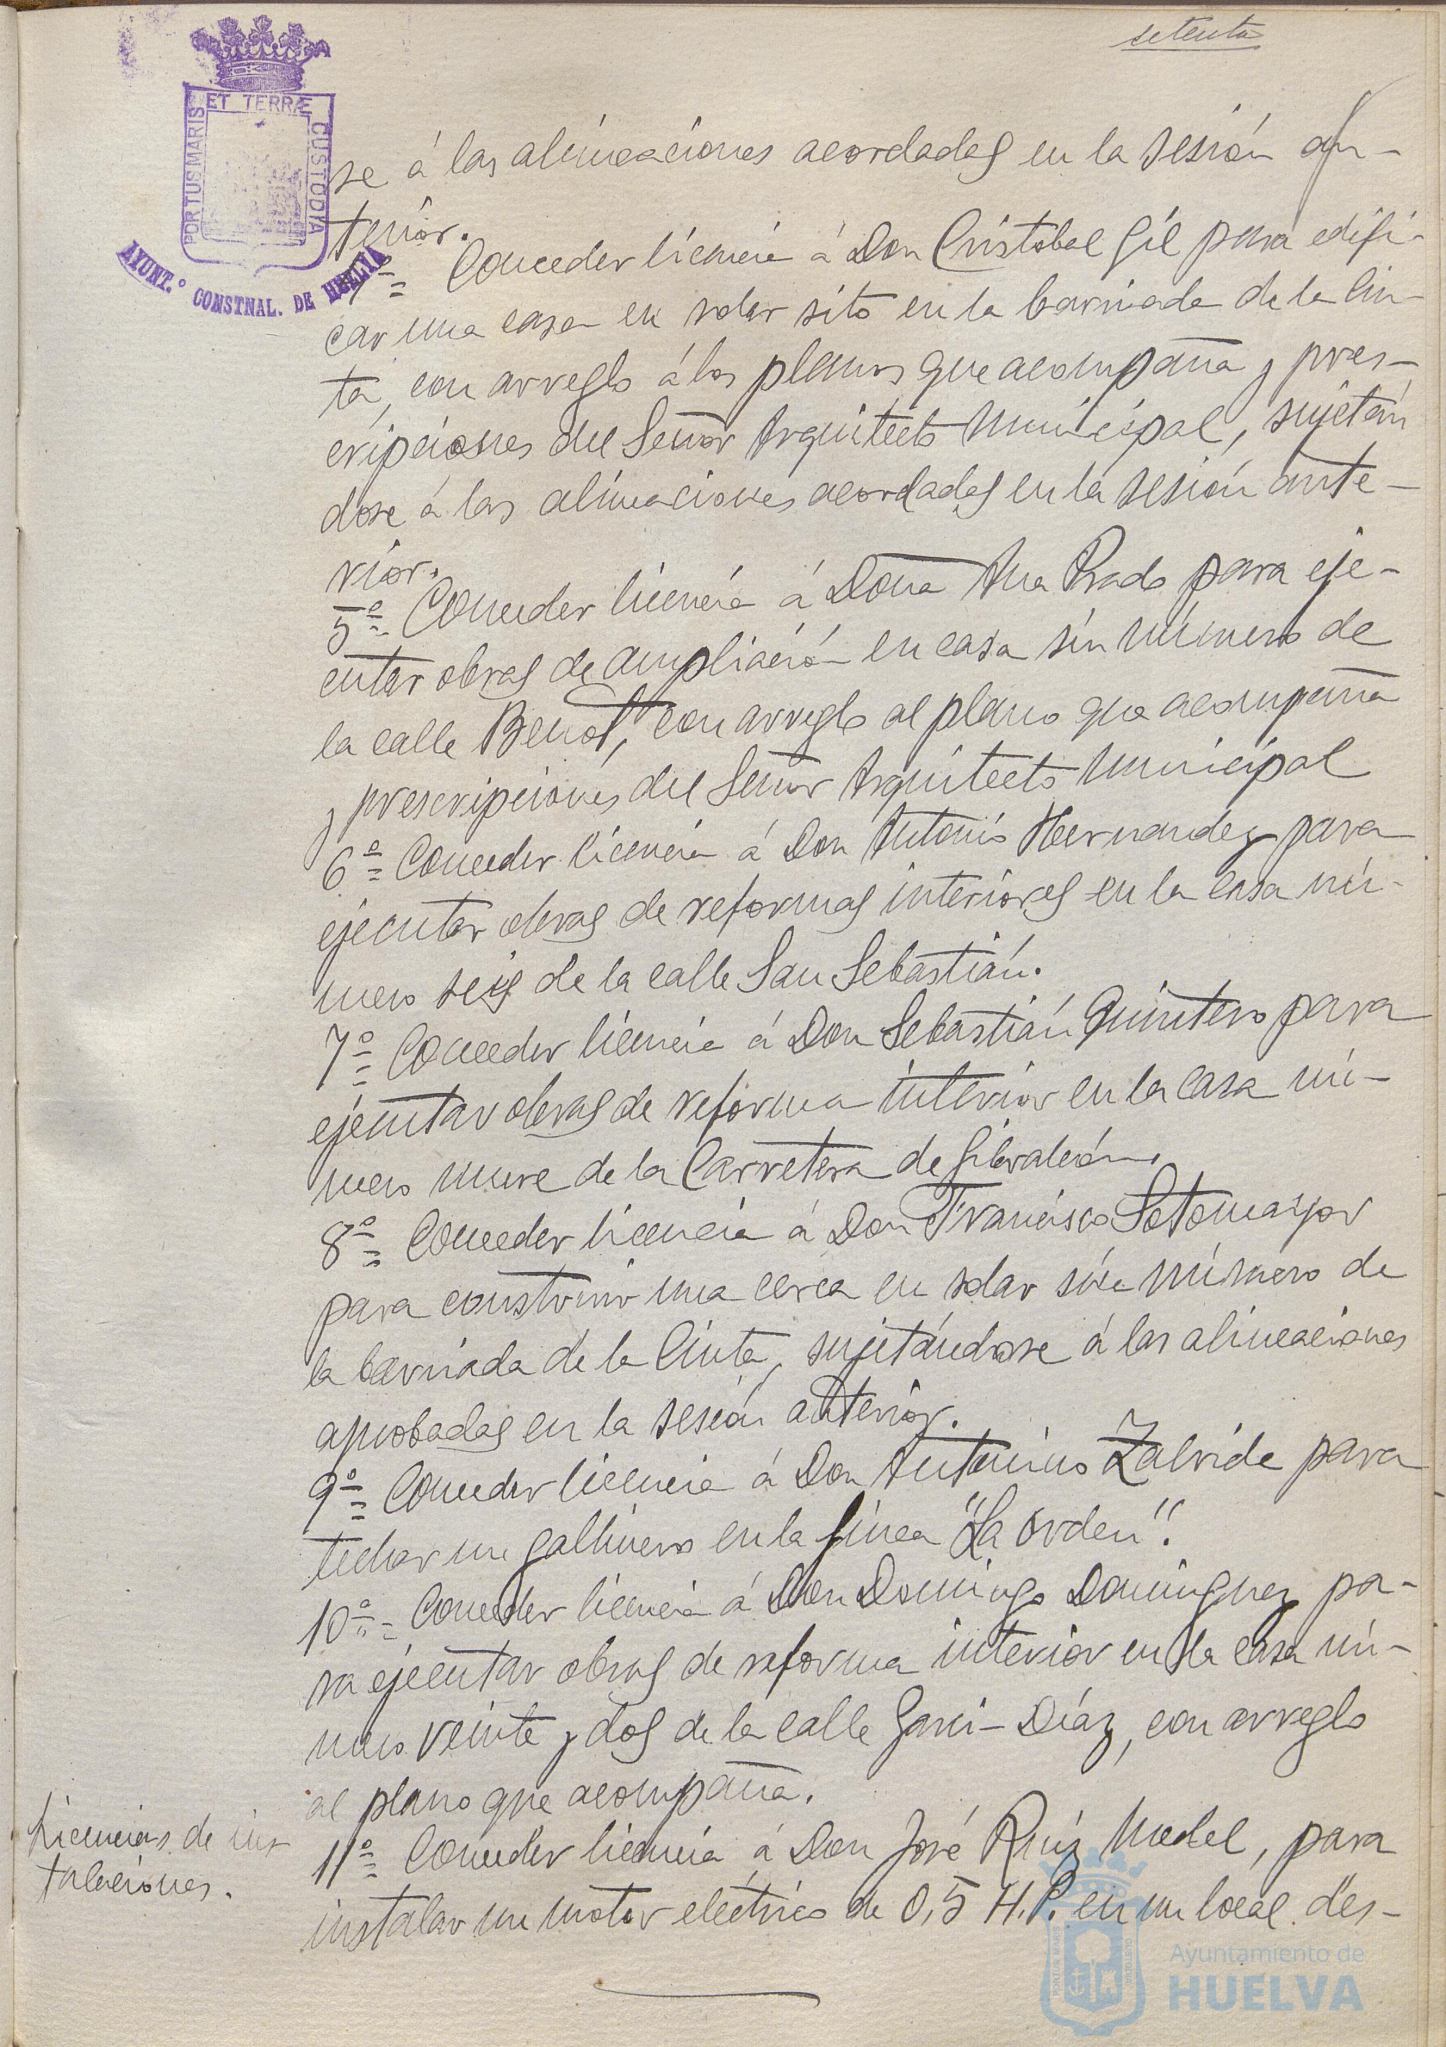 setenta
PORTUS MARIS ET TERRÆ CUSTODIA
AYUNT.º CONSTNAL. DE HUELVA
se á las alineaciones acordadas en la sesión an-
terior.
Conceder licencia á Don Cristobal Gil para edifi-
car una casa en solar sito en la barriada de la Cin-
ta, con arreglo á los planos que acompaña y pres-
cripciones del Señor Arquitecto Municipal, sujetán
dose á las alineaciones acordadas en la sesión ante-
rior.
5º= Conceder licencia á Doña Ana Prado para eje-
cutar obras de ampliación en casa sin número de
la calle Benot, con arreglo al plano que acompaña
y prescripciones del Señor Arquitecto Municipal
6º= Conceder licencia á Don Antonio Hernandez para
ejecutar obras de reformas interiores en la casa nú-
mero seis de la calle San Sebastián.
7º= Conceder licencia á Don Sebastián Quintero para
ejecutar obras de reforma interior en la casa nú-
mero nueve de la Carretera de Gibraleón.
8º= Conceder licencia á Don Francisco Sotomayor
para construir una cerca en solar sin número de
la barriada de la Cinta, sujetándose á las alineaciones
aprobadas en la sesión anterior.
9º= Conceder licencia á Don Antonino Zalvide para
techar un gallinero en la finca "La Orden".
10º= Conceder licencia á Don Domingo Dominguez pa-
ra ejecutar obras de reforma interior en la casa nú-
mero veinte y dos de la calle Garci-Díaz, con arreglo
al plano que acompaña.
Licencias de ins
talaciones.
11º= Conceder licencia á Don José Ruiz Medel, para
instalar un motor eléctrico de 0,5 H.P. en un local des-
Ayuntamiento de
HUELVA